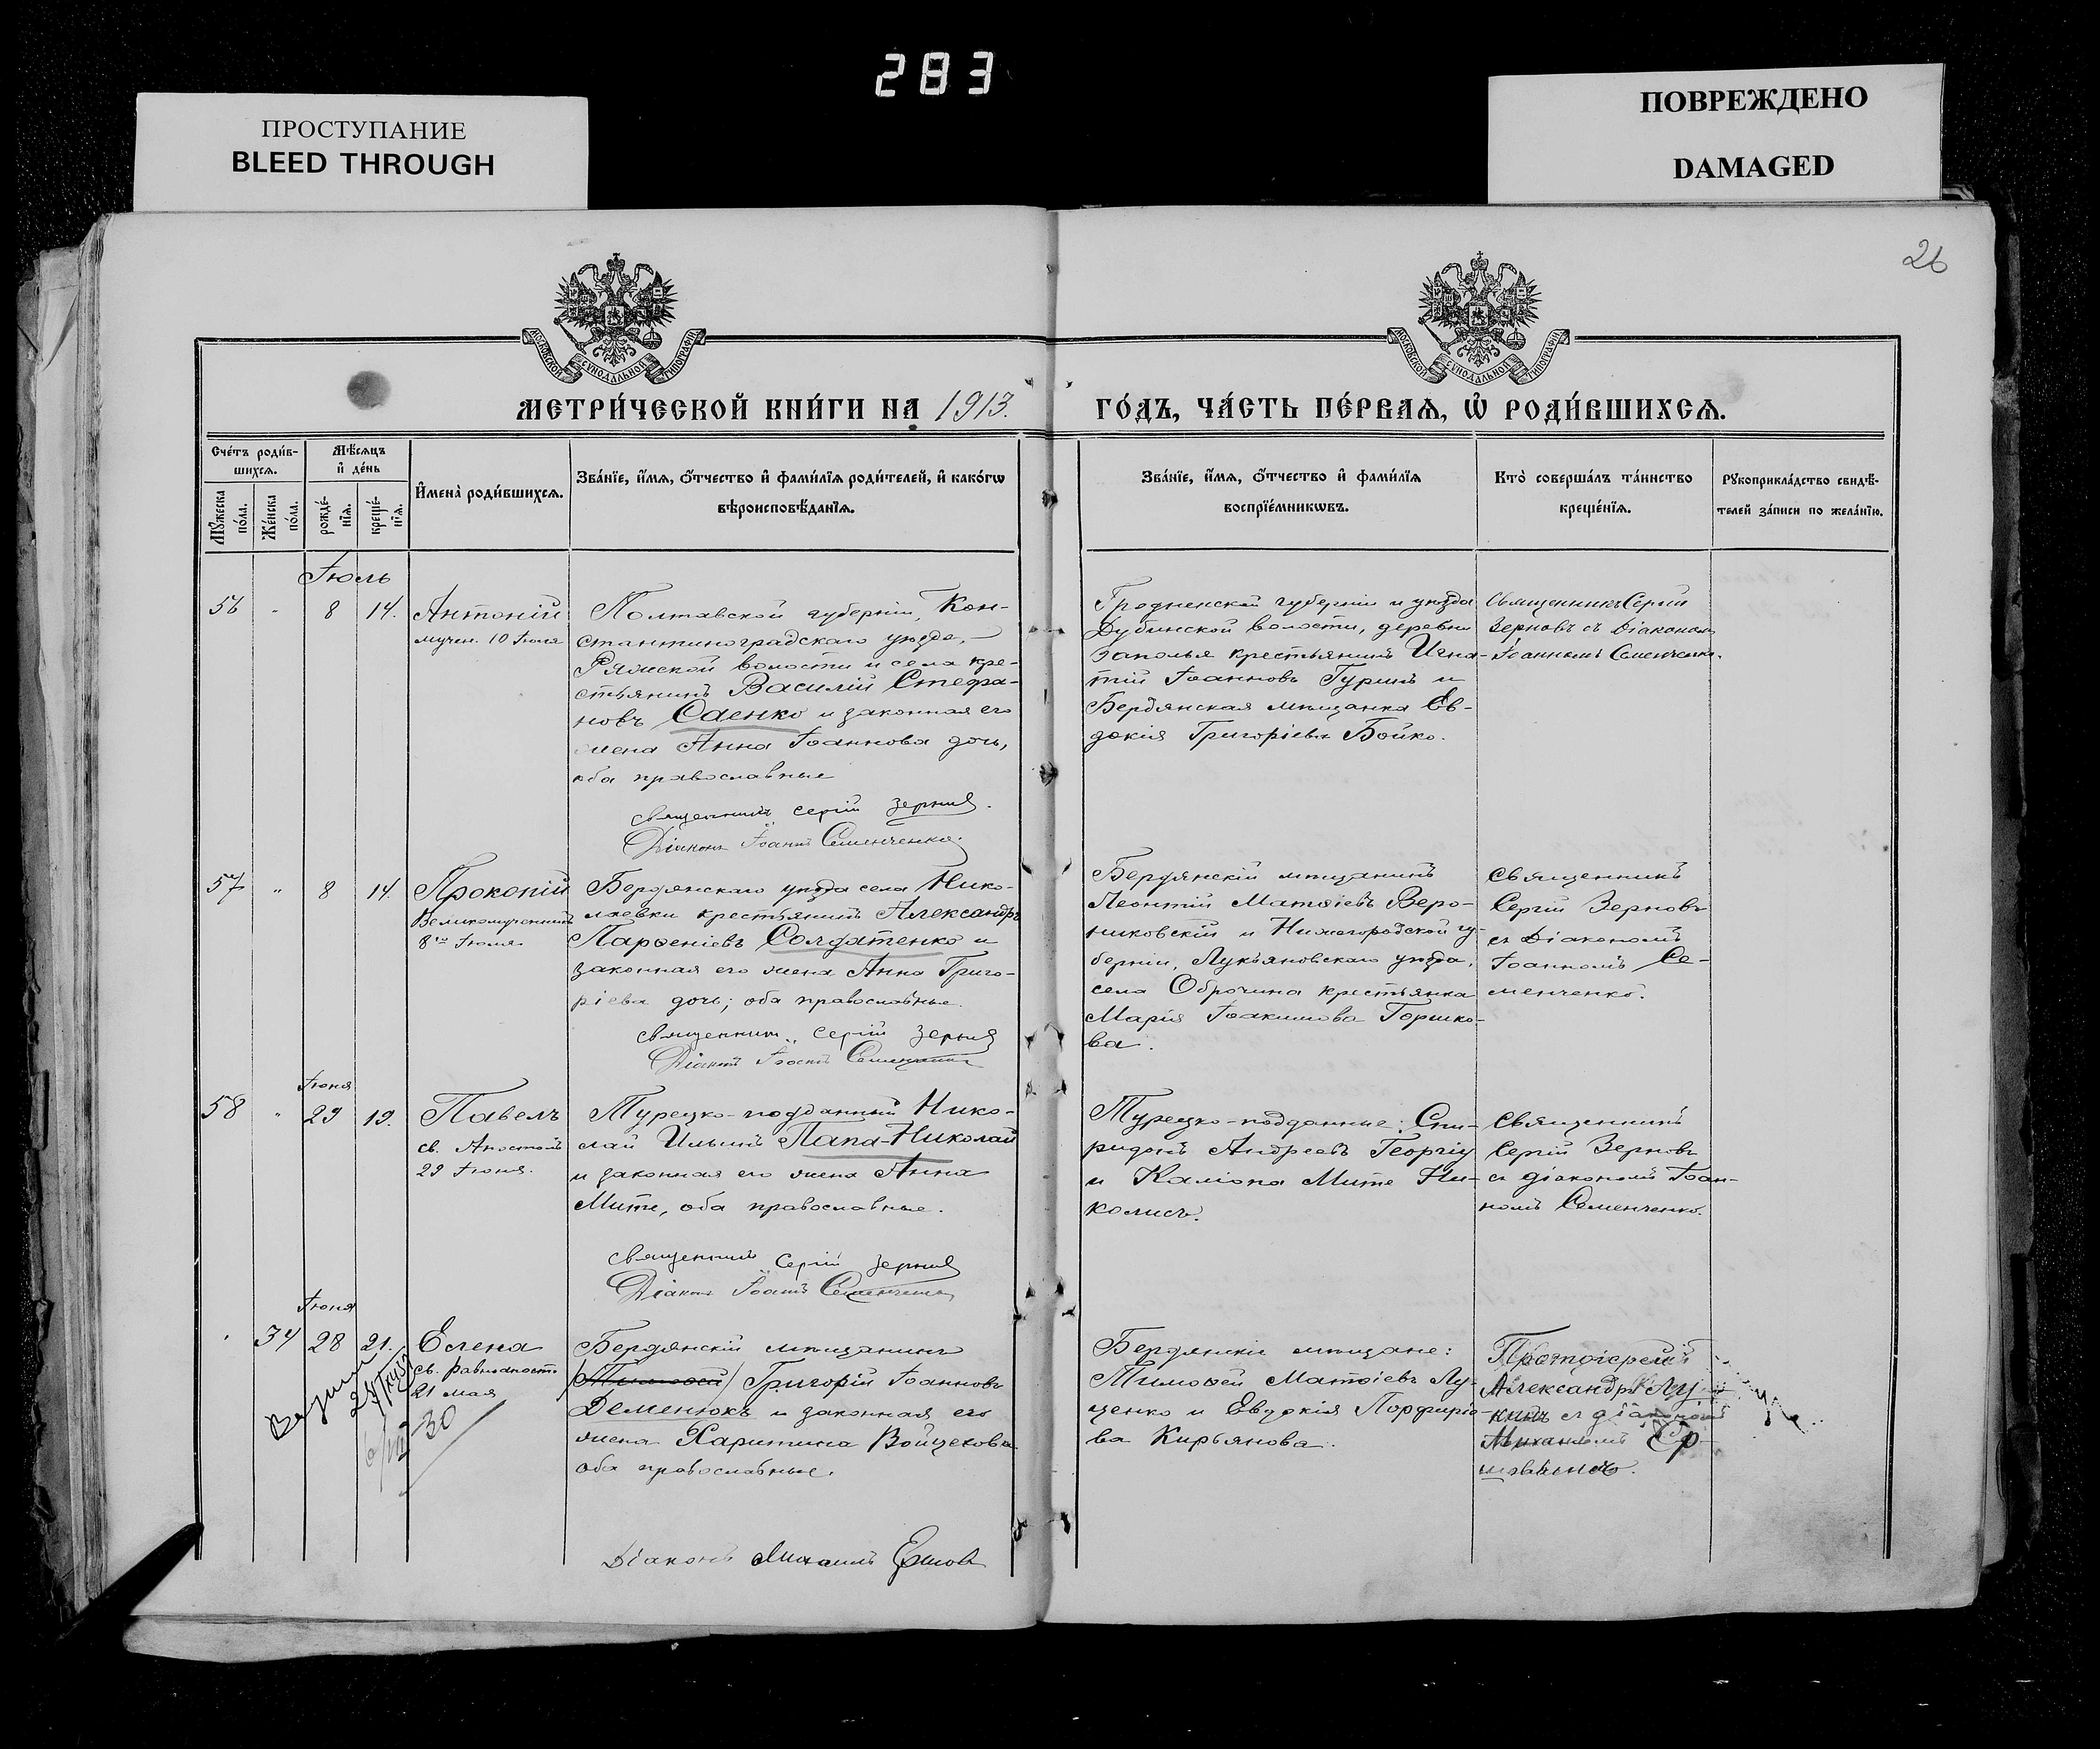 283
ПРОСТУПАНИЕ
BLEED THROUGH
ПОВРЕЖДЕНО
DAMAGED
26
МОСКОВСКОЙ СѴНОДАЛЬНОЙ ТИПОГРАФІИ
МОСКОВСКОЙ СѴНОДАЛЬНОЙ ТИПОГРАФІИ
МЕТРИ́ЧЕСКОЙ КНИ́ГИ НА 1913.
ГО́ДЪ, ЧА́СТЬ ПЕ́РВАѦ, Ѡ҆ РОДИ́ВШИХСѦ.
Сче́тъ роди́в-
шихсѧ.
Мѣ́сѧцъ
и҆ де́нь
Мꙋ́жеска
по́ла.
Же́нска
по́ла.
рожде́-
нїѧ.
креще́-
нїѧ.
И҆мена̀ роди́вшихсѧ.
Зва́нїе, и҆́мѧ, ѻ҆́тчество и҆ фами́лїѧ роди́телей, и҆ како́гѡ
вѣроисповѣ́данїѧ.
Зва́нїе, и҆́мѧ, ѻ҆́тчество и҆ фами́лїѧ
воспрїе́мникѡвъ.
Кто̀ соверша́лъ та́инство
креще́нїѧ.
Рꙋкоприкла́дство свидѣ́-
телей за́писи по жела́нїю.
Іюль
56 " 8 14. Антоній
мучен. 10 Іюля
Полтавской губерніи, Кон-
стантиноградскаго уѣзда,
Ряжской волости и села кре-
стьянинъ Василій Стефа-
новъ Саенко и законная его
жена Анна Іоаннова дочь,
оба православные
Священникъ Сергій Зерновъ.
Діаконъ Іоаннъ Семенченко.
Гродненской губерніи и уѣзда
Дубинской волости, деревни
Заполья крестьянинъ Игна-
тій Іоанновъ Гуринъ и
Бердянская мѣщанка Ев-
докія Григоріева Бойко.
Священникъ Сергій
Зерновъ съ Діакономъ
Іоанномъ Семенченко.
57 " 8 14. Прокопій
Великомученникъ
8го Іюля
Бердянскаго уѣзда села Нико-
лаевки крестьянинъ Александръ
Парѳеніевъ Солдатенко и
законная его жена Анна Григо-
ріева дочь; оба православные.
Священникъ Сергій Зерновъ
Діаконъ Іоаннъ Семенченко
Бердянскій мѣщанинъ
Леонтій Матѳіевъ Веро-
никовскій и Нижегородской гу-
берніи, Лукьяновскаго уѣзда,
села Оброчина крестьянка
Марія Іоакимова Горшко-
ва.
Священникъ
Сергій Зерновъ
съ Діакономъ
Іоанномъ Се-
менченко.
Іюня
58 " 29 19. Павелъ
св. Апостолъ
29 Іюня.
Турецко-подданный Нико-
лай Ильинъ Папа-Николай
и законная его жена Анна
Мите, оба православные.
Священникъ Сергій Зерновъ
Діаконъ Іоаннъ Семенченко
Турецко-подданные: Спи-
ридонъ Андреевъ Георгіу
и Каліопа Мите Ни-
колисъ.
Священникъ
Сергій Зерновъ
съ діакономъ Іоан-
номъ Семенченко.
Іюня
34 28 21. Елена
св. равноапост.
21 мая
30
Бердянскій мѣщанинъ
/Тимофей/ Григорій Іоанновъ
Деменюкъ и законная его
жена Харитина Войцехова
оба православные.
Діаконъ Михаилъ Ершовъ
Бердянскіе мѣщане:
Тимоѳей Матѳіевъ Лу-
ценко и Евдокія Порфиріе-
ва Кирьянова.
Протоіерей
Александръ
съ діакономъ
Михаиломъ Ер-
шовымъ.